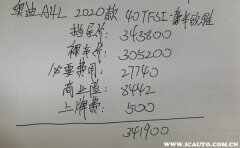 奥迪A4L 2020款 40TFSI 豪华致雅
指导价: 343800
裸车价: 305200
必要费用: 27740
商业险: 8442
上牌费: 500
341900
WWW.ICAUTO.COM.CN